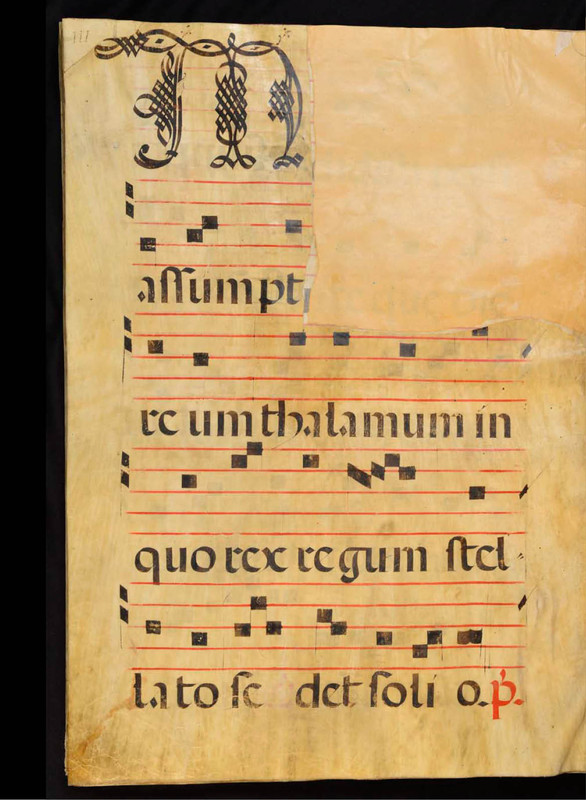 M
aſſumpt
re um thalamum in
quo rex regum ſtel
lato ſe det ſoli o. p.